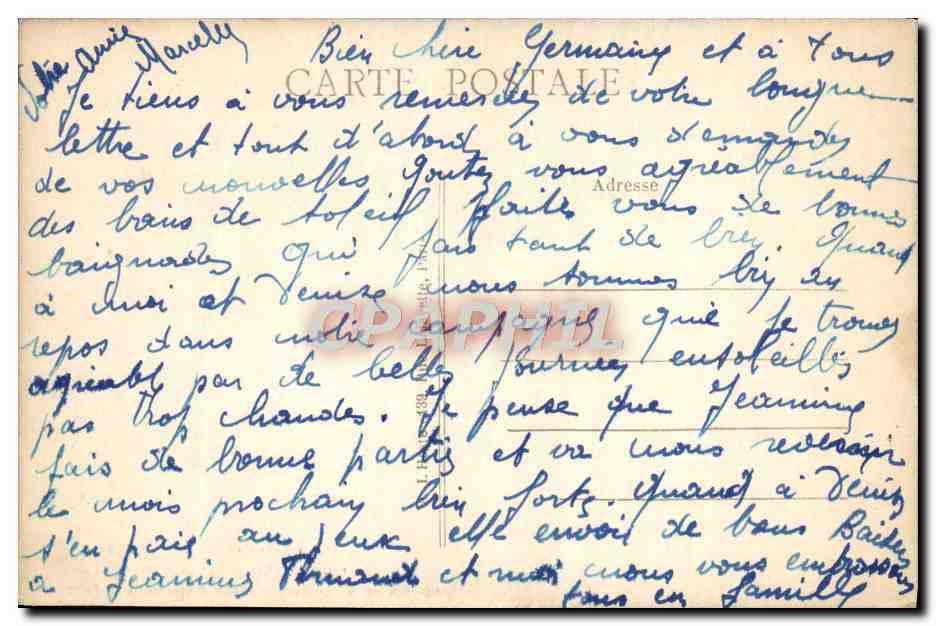 Bien chère Germaine et à tous
CARTE POSTALE
Je tiens à vous remercier de votre longue
lettre et tout d'abord à vous demander
de vos nouvelles Goutez vous agréablement
Adresse
des bains de soleil faites vous de bonnes
baignades qui fais tant de bien. Quant
à moi et Denise nous sommes bien au
repos dans notre campagne que je trouve
agréable par de belles journées ensoleillés
pas trop chaudes. Je pense que Jeannine
fais de bonne partie et va nous revenir
le mois prochain bien forte. Quand à Denise
s'en fais au jeux elle envoie de bons Baisers
a Jeannine Fernand et moi nous vous embrassons
tous en famille
Votre Amie
Marcelle
CPAPHIL